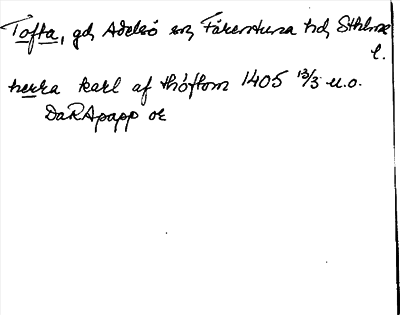 Tofta, gd, Adelsö sn, Färentuna hd, Sthlms
l.
herra karl af thóftom 1405 13/3 u.o.
DaRApapp or